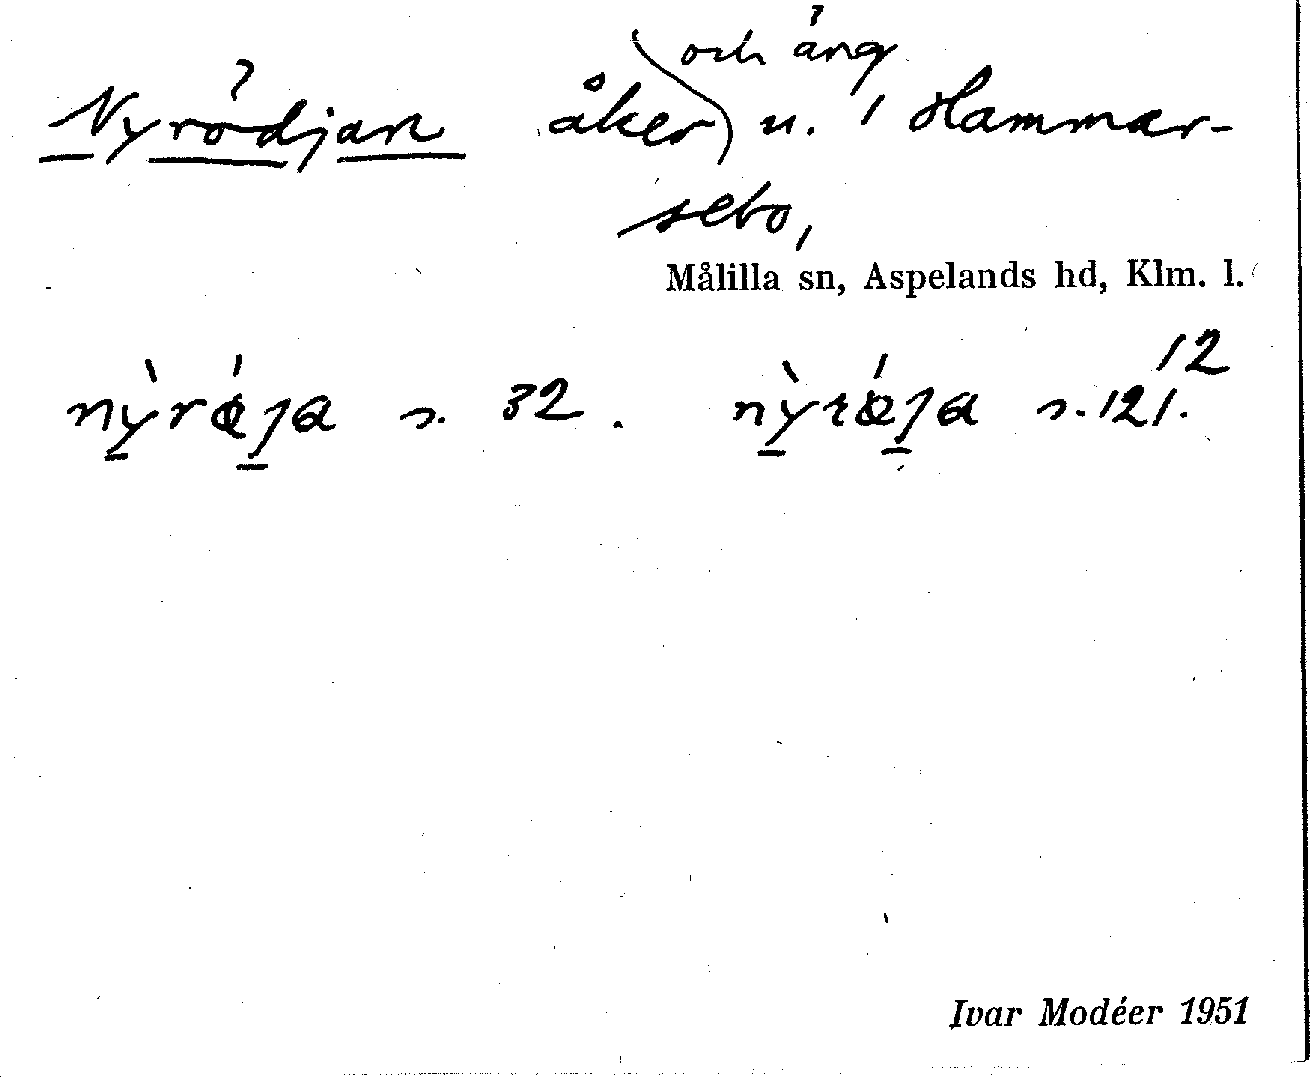 och äng
Nyrödjan åker u. Hammar-
sebo,
Målilla sn, Aspelands hd, Klm. l.
12
s. 32. s. 121.
Ivar Modéer 1951